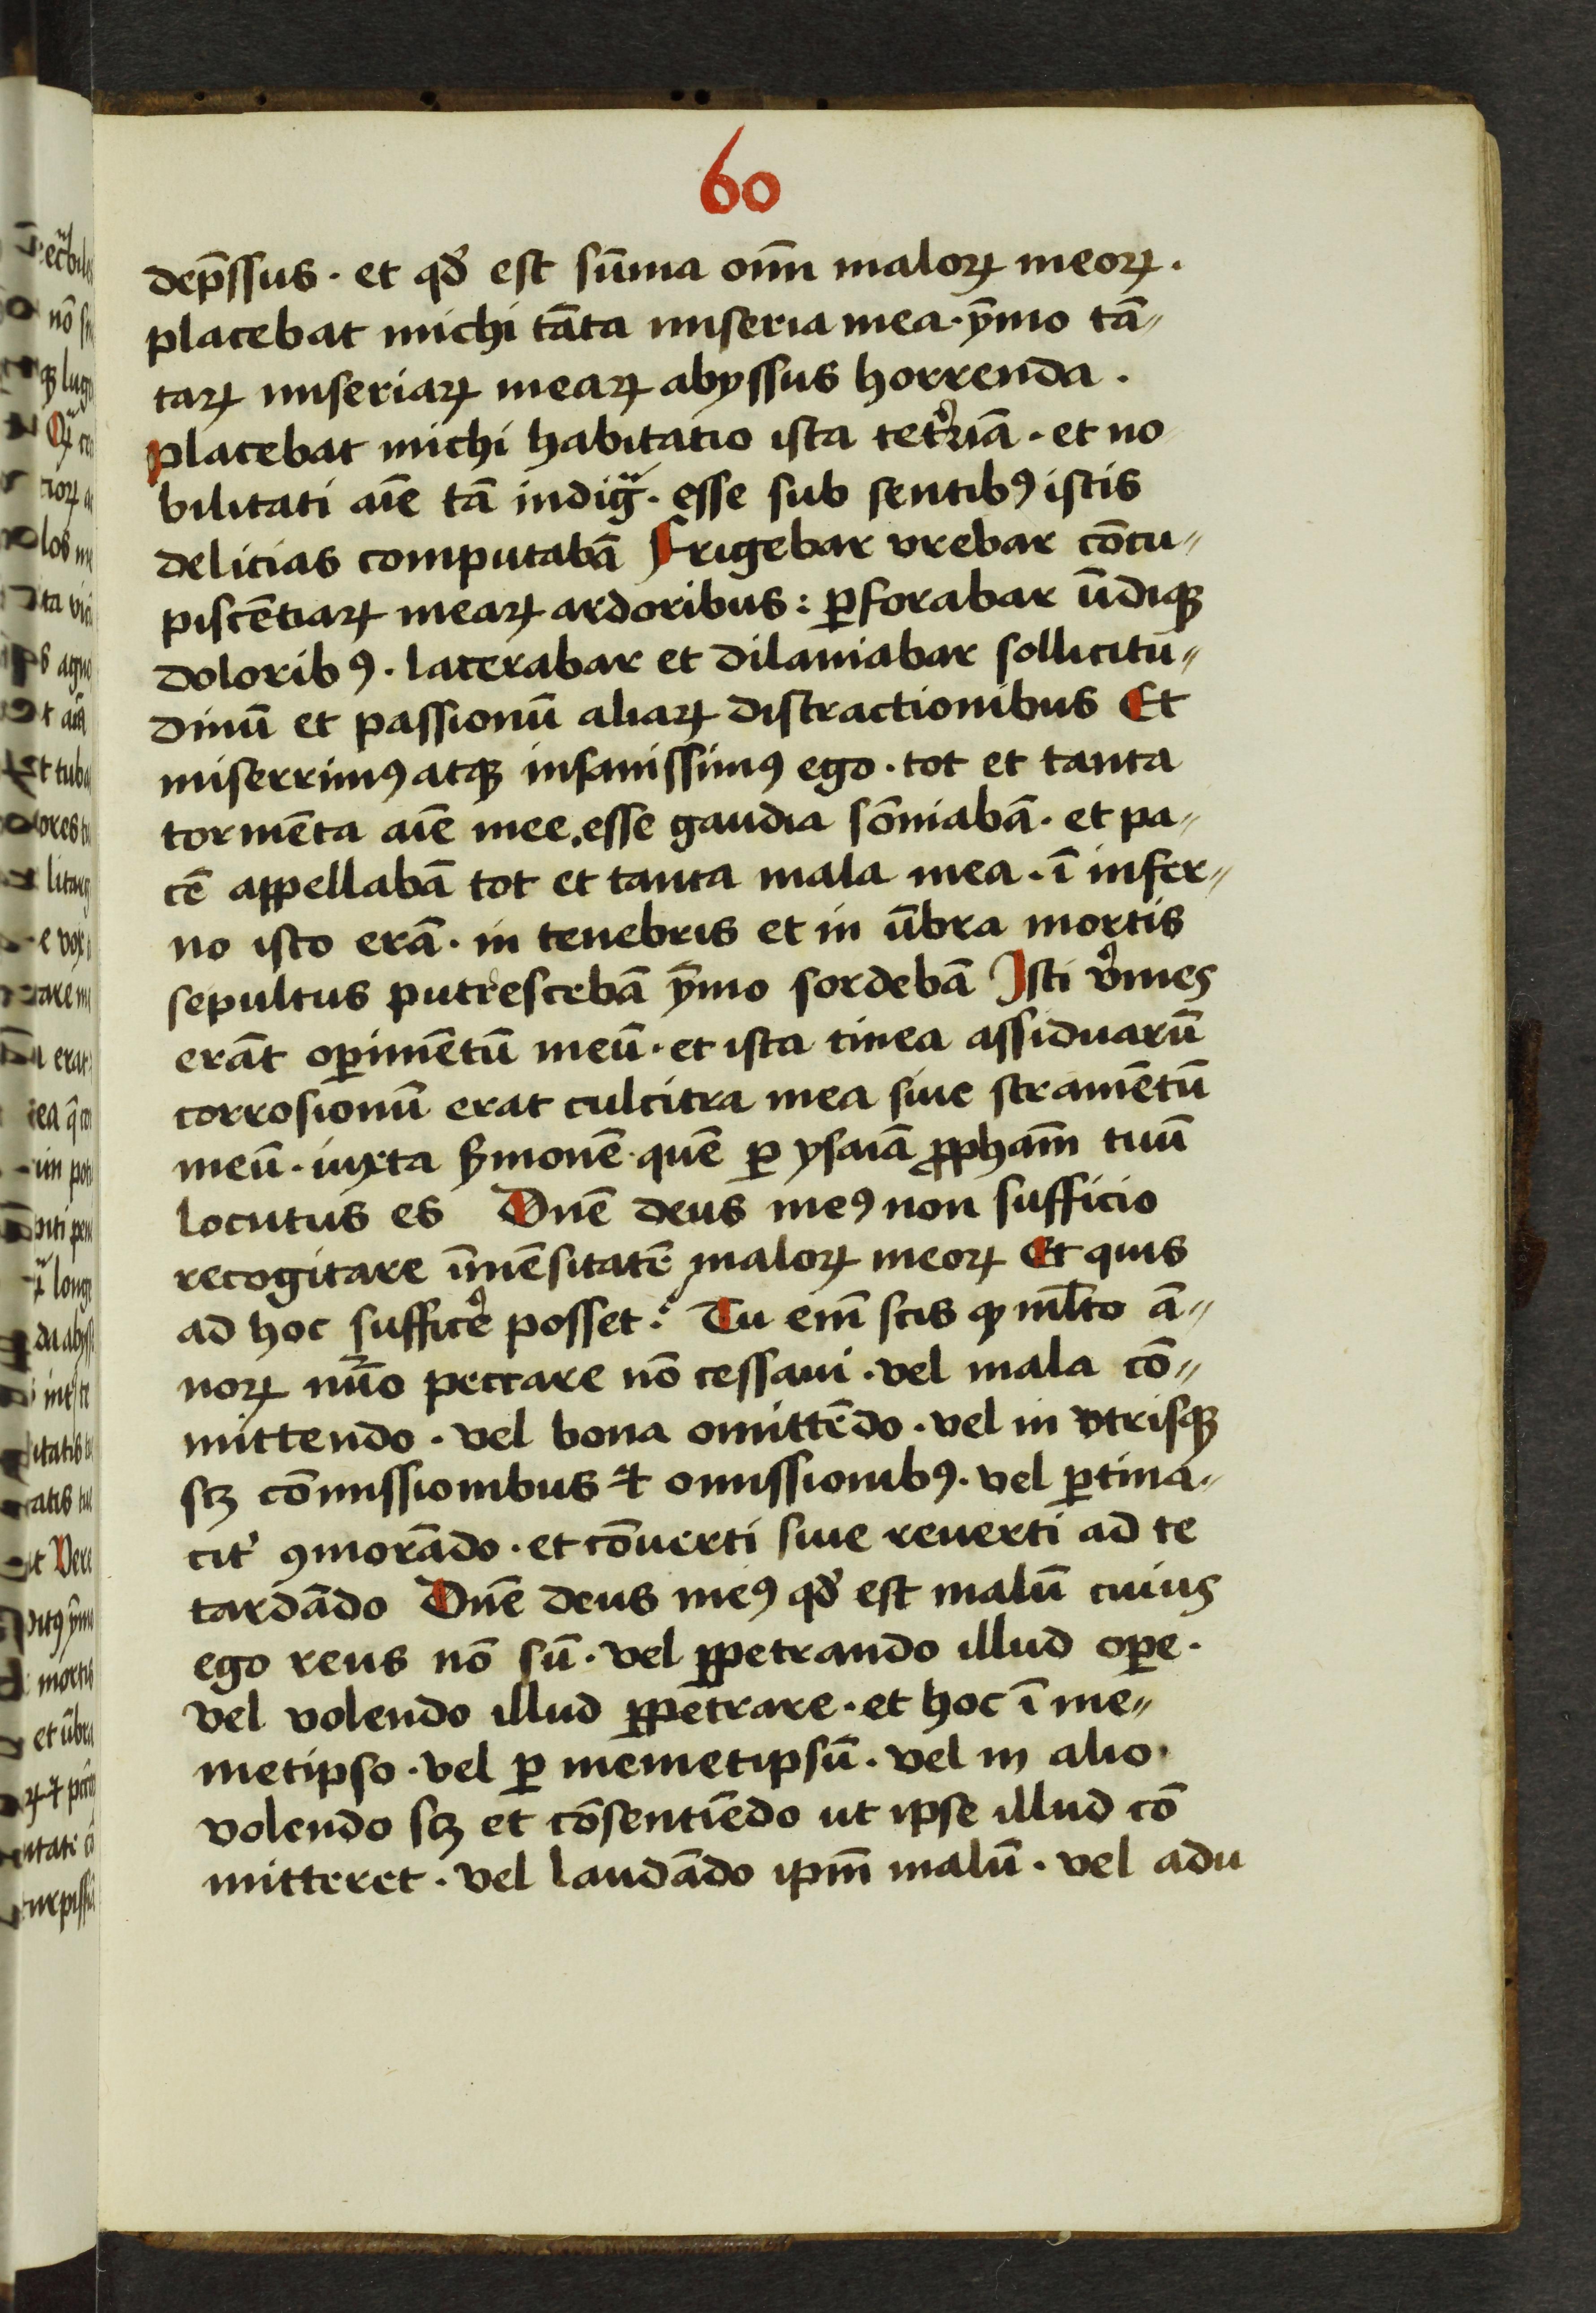 60
dep̄ssus · et qđ est sūma om̄ maloꝝ meoꝝ ·
placebat michi tāta miseria mea · ȳmo tā〃
taꝝ miseriaꝝ meaꝝ abyssus horrenda ·
placebat michi habitatio ista teterͥmā · et no
bilitati aīe tā indigᷓ · esse sub sentibꝯ istis
delicias computabā Frigebar vrebar cōcu〃
piscētiaꝝ meaꝝ ardoribus : ꝑforabar ūdiqꝫ
doloribꝯ · lacerabar et dilaniabar sollicitu〃
dinū et passionū aliaꝝ distractionibus Et
miserrimꝯ atqꝫ insanissimꝯ ego · tot et tanta
tormēta aīe mee · esse gaudia sōniabā · et pa〃
cē appellabā tot et tanta mala mea · ī infer〃
no isto erā · in tenebris et in ūbra mortis
sepultus putrescebā ȳmo sordebā Isti v̓mes
erāt oꝑimētū meū · et ista tinea assiduarū
corrosionū erat culcitra mea siue stramētū
meū · iuxta s̓monē · quē ꝑ ysaiā ꝓpham̄ tuū
locutus es Dn̄e deus meꝯ non sufficio
recogitare īmēsitatē maloꝝ meoꝝ Et quis
ad hoc suffice̓ posset : Tu em̄ scis ꝙ ml̄to ā〃
noꝝ nūo peccare nō cessaui · vel mala cō〃
mittendo · vel bona omittēdo · vel in vtrisqꝫ
scꝫ cōmissionibus ⁊ omissionibꝯ · vel ꝑtina〃
cit̓ ꝯmorādo · et cōuerti siue reuerti ad te
tardādo Dn̄e deus meꝯ qđ est malū cuius
ego reus nō sū · vel ꝑpetrando illud oꝑe ·
vel volendo illud ꝑpetrare · et hoc ī me〃
metipso · vel ꝑ memetipsū · vel in alio ·
volendo scꝫ et cōsentiēdo ut ipse illud cō
mitteret · vel laudādo ipm̄ malū · vel adu